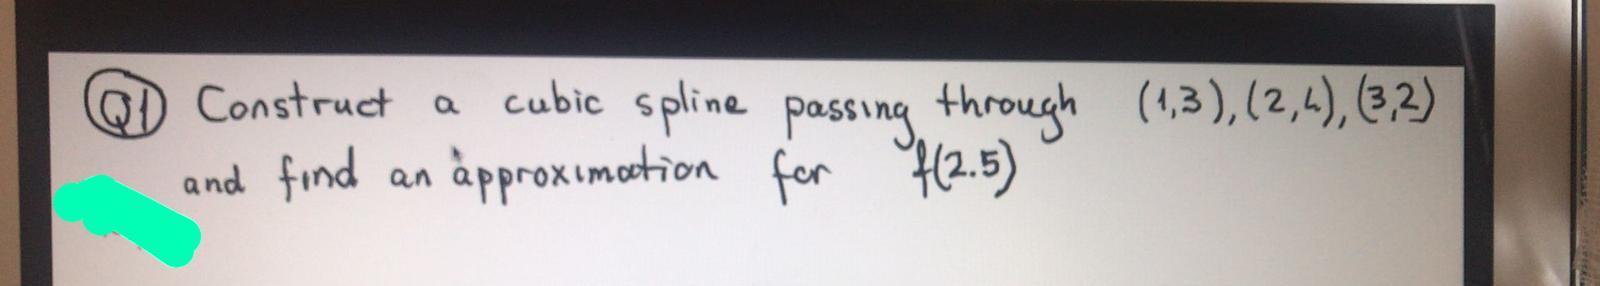 Q1 Construct a cubic spline passing through (1,3), (2,4), (3,2)
and find an approximation for f(2.5)